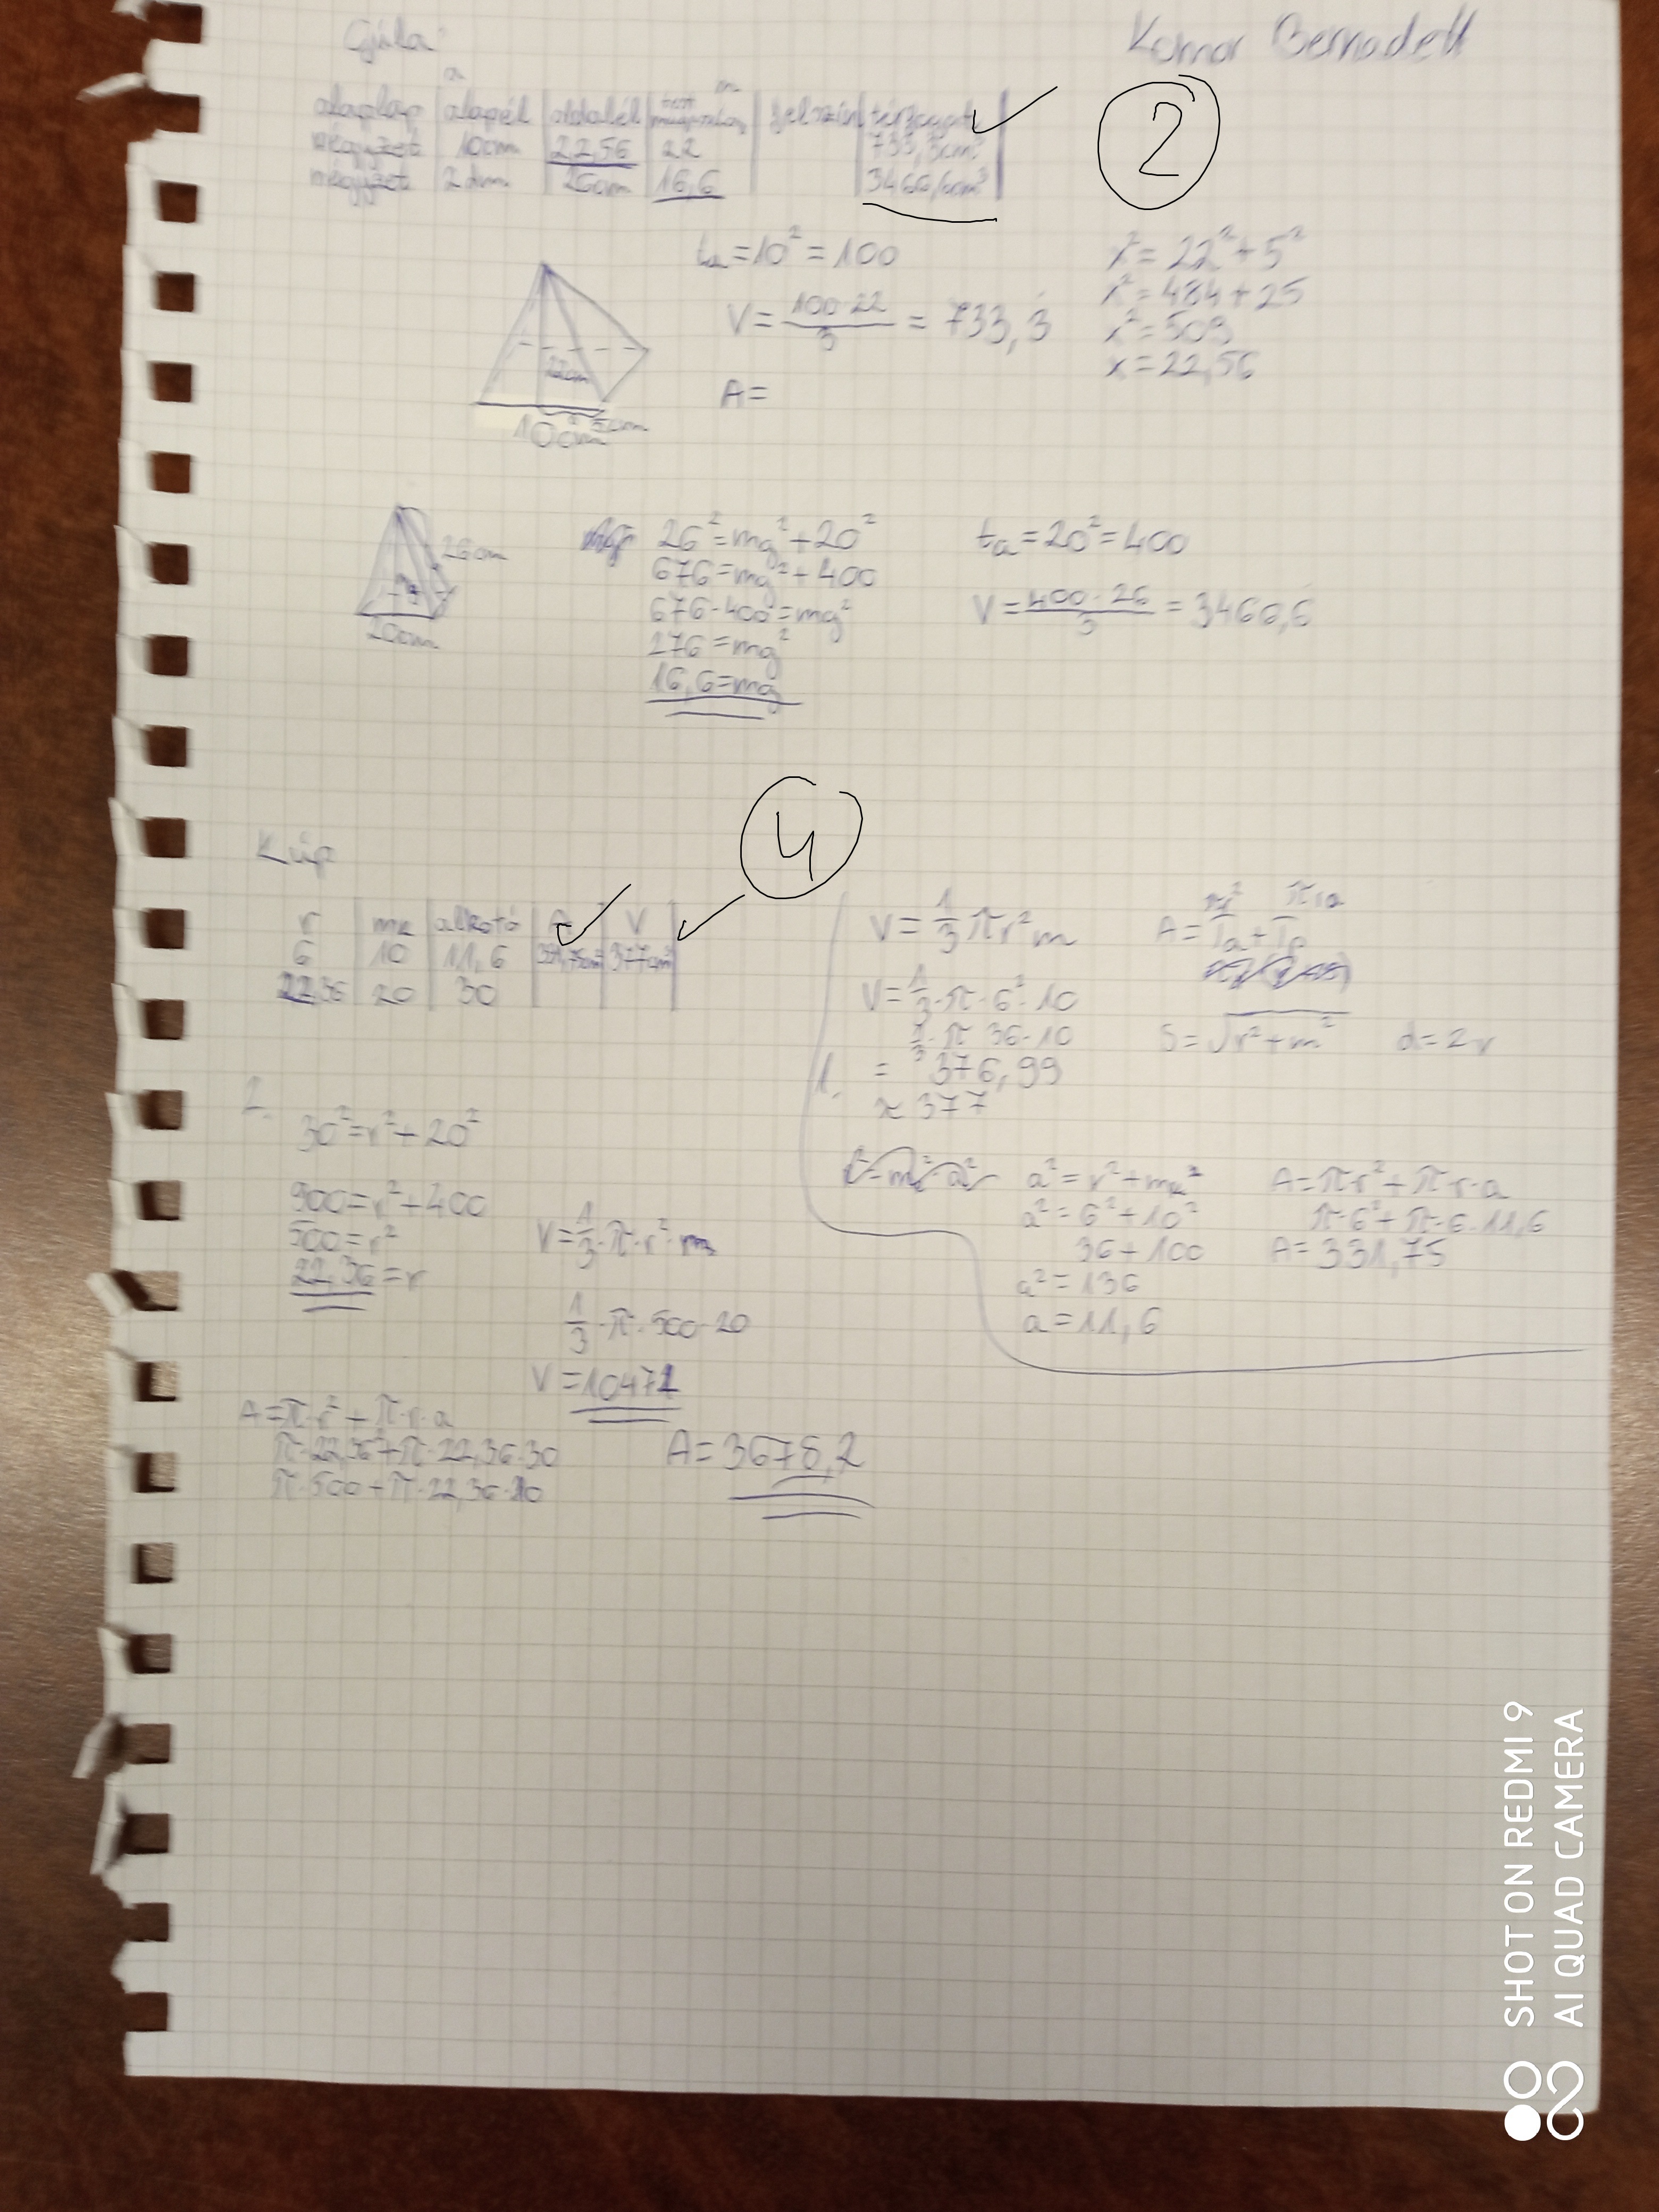 Gúla:
Komor Bernadett
a
m
alaplap alapél oldalél test magasság felszín térfogat
négyzet 10cm 22,56 22 733,3cm³
négyzet 2dm 26cm 16,6 3466,6cm³
2
tₐ=10²=100
V=100·22/3=733,3
A=
x²=22²+5²
x²=484+25
x²=509
x=22,56
22cm
5cm
10cm
26cm
mg
20cm
26²=mg²+20²
676=mg²+400
676-400=mg²
276=mg²
16,6=mg
tₐ=20²=400
V=400·26/3=3466,6
4
Kúp
r mₖ alkotó A V
6 10 11,6 331,75cm² 377cm³
22,36 20 30
V=1/3πr²m
V=1/3·π·6²·10
1/3·π·36·10
1. = 376,99
≈377
πr² πra
A=Tₐ+Tₚ
S=√r²+m² d=2r
r²=mₖ²-a²
a²=r²+mₖ²
a²=6²+10²
36+100
a²=136
a=11,6
A=πr²+π·r·a
π·6²+π·6·11,6
A=331,75
2.
30²=r²+20²
900=r²+400
500=r²
22,36=r
V=1/3·π·r²·m
1/3·π·500·20
V=10471
A=π·r²+π·r·a
π·22,36²+π·22,36·30
π·500+π·22,36·
A=3678,2
SHOT ON REDMI 9
AI QUAD CAMERA